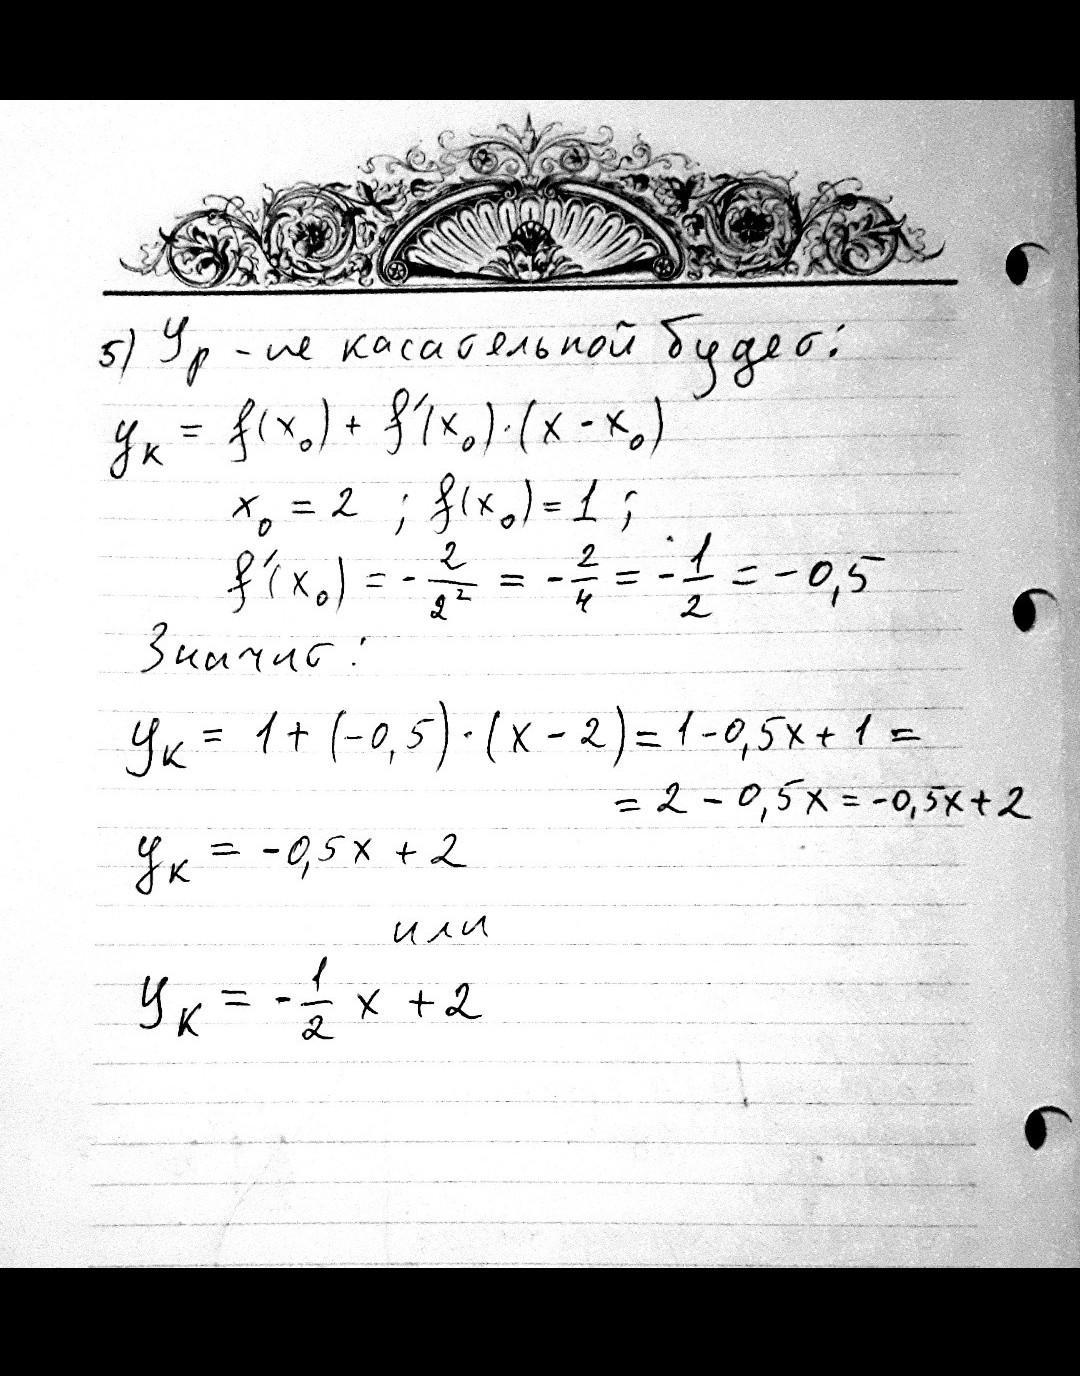 5) Ур-ие касательной будет:
yк = f(x₀) + f′(x₀)·(x − x₀)
x₀ = 2 ; f(x₀) = 1 ;
f′(x₀) = −2/2² = −2/4 = −1/2 = −0,5
Значит:
yк = 1 + (−0,5)·(x − 2) = 1 − 0,5x + 1 =
= 2 − 0,5x = −0,5x + 2
yк = −0,5x + 2
или
yк = −1/2 x + 2